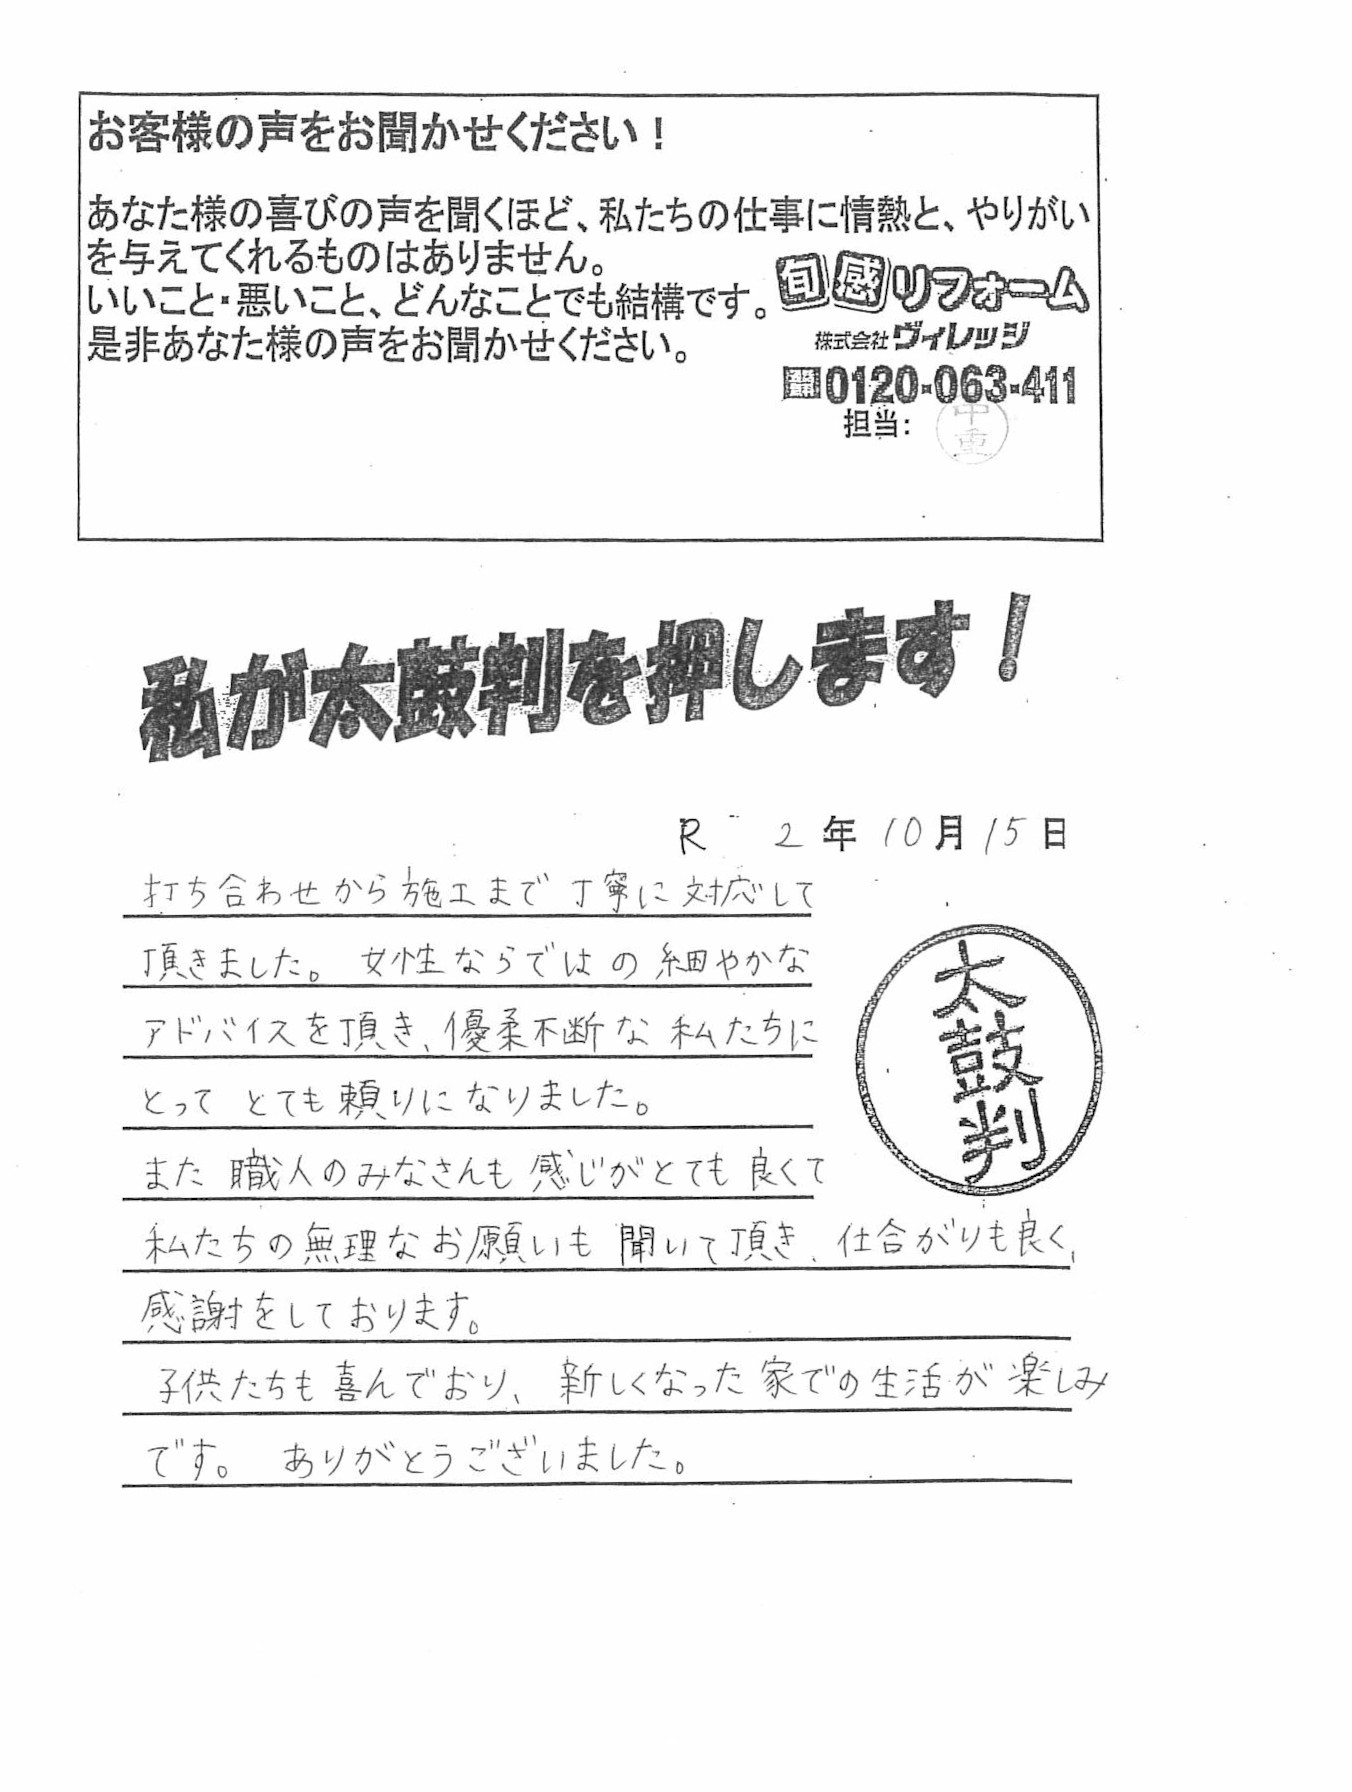 お客様の声をお聞かせください！
あなた様の喜びの声を聞くほど、私たちの仕事に情熱と、やりがい
を与えてくれるものはありません。
いいこと・悪いこと、どんなことでも結構です。
是非あなた様の声をお聞かせください。
旬感リフォーム
株式会社ヴィレッジ
0120-063-411
担当：
中重
私が太鼓判を押します！
R 2年10月15日
打ち合わせから施工まで丁寧に対応して
頂きました。女性ならではの細やかな
アドバイスを頂き、優柔不断な私たちに
とってとても頼りになりました。
また職人のみなさんも感じがとても良くて
私たちの無理なお願いも聞いて頂き、仕合がりも良く、
感謝をしております。
子供たちも喜んでおり、新しくなった家での生活が楽しみ
です。ありがとうございました。
太鼓判